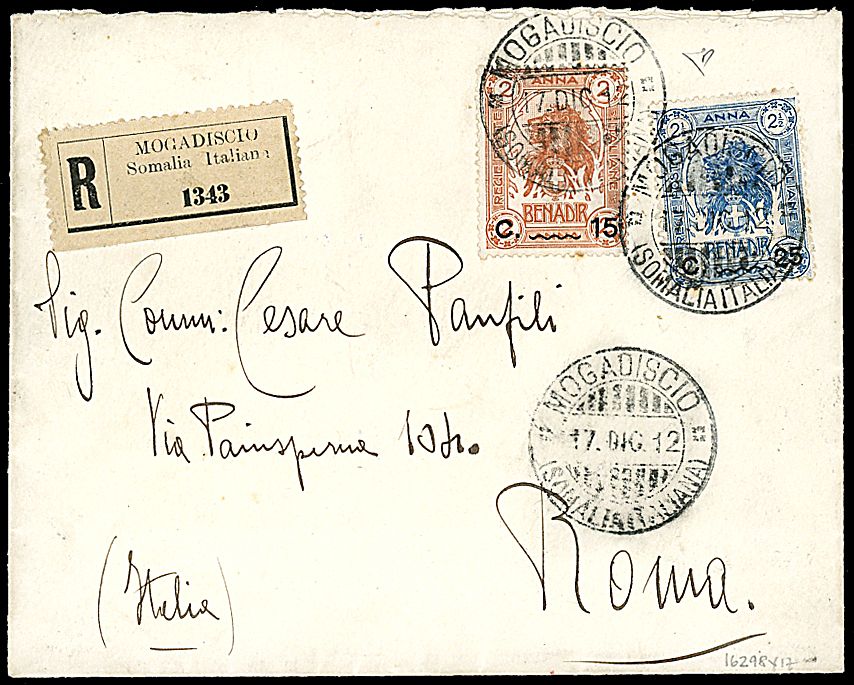 R
MOGADISCIO
Somalia Italiana
1343
MOGADISCIO
17. DIC. 12
(SOMALIA ITALIANA)
2 ANNA 2
REGIE POSTE ITALIANE
BENADIR
C. 15
MOGADISCIO
(SOMALIA ITALIANA)
2½ ANNA 2½
REGIE POSTE ITALIANE
BENADIR
C. 25
Sig. Comm: Cesare Panfili
Via Panisperna 104.
MOGADISCIO
17. DIC. 12
(SOMALIA ITALIANA)
Roma.
(Italia)